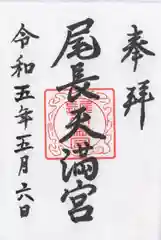 奉拝
尾長天満宮
令和五年五月六日